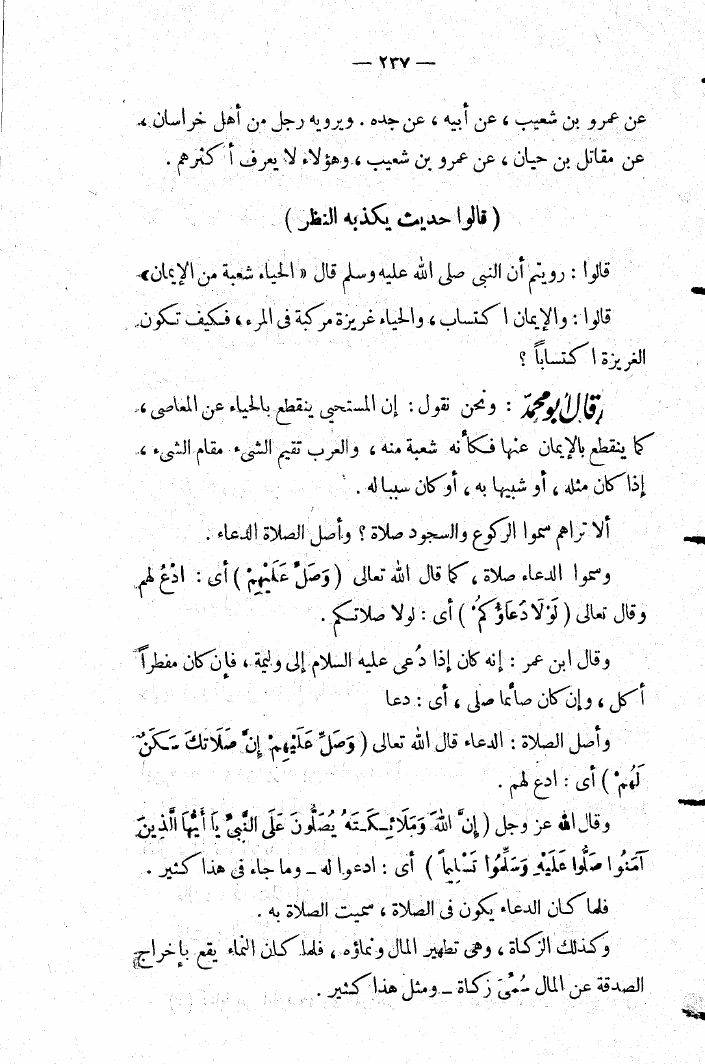 — ٢٣٧ —
عن عمرو بن شعيب ، عن أبيه ، عن جده . ويرويه رجل من أهل خراسان ،
عن مقاتل بن حيان ، عن عمرو بن شعيب ، وهؤلاء لا يعرف أكثرهم .
( قالوا حديث يكذبه النظر )
قالوا : رويتم أن النبى صلى الله عليه وسلم قال « الحياء شعبة من الإيمان»
قالوا : والإيمان اكتساب ، والحياء غريزة مركبة فى المرء ، فكيف تكون
الغريزة اكتساباً ؟
قال أبو محمد : ونحن نقول : إن المستحيى ينقطع بالحياء عن المعاصى ،
كما ينقطع بالإيمان عنها فكأنه شعبة منه ، والعرب تقيم الشىء مقام الشىء ،
إذا كان مثله ، أو شبيها به ، أو كان سببا له .
ألا تراهم سموا الركوع والسجود صلاة ؟ وأصل الصلاة الدعاء .
وسموا الدعاء صلاة ، كما قال الله تعالى ( وَصَلِّ عَلَيْهِمْ ) أى : ادْعُ لهم
وقال تعالى ( لَوْلَا دَعَاؤُكُمْ ) أى : لولا صلاتكم .
وقال ابن عمر : إنه كان إذا دُعى عليه السلام إلى وليمة ، فإن كان مفطراً
أكل ، وإن كان صائما صلى ، أى : دعا
وأصل الصلاة : الدعاء قال الله تعالى ( وَصَلِّ عَلَيْهِمْ إِنَّ صَلَاتَكَ سَكَنٌ
لَهُمْ ) أى : ادع لهم .
وقال الله عز وجل ( إِنَّ اللهَ وَمَلَائِكَتَهُ يُصَلُّونَ عَلَى النَّبِىِّ يَا أَيُّهَا الَّذِينَ
آمَنُوا صَلُّوا عَلَيْهِ وَسَلِّمُوا تَسْلِيماً ) أى : ادعوا له ــ وما جاء فى هذا كثير .
فلما كان الدعاء يكون فى الصلاة ، سميت الصلاة به .
وكذلك الزكاة ، وهى تطهير المال ونماؤه ، فلما كان النماء يقع بإخراج
الصدقة عن المال سُمِّىَ زكاة ــ ومثل هذا كثير .